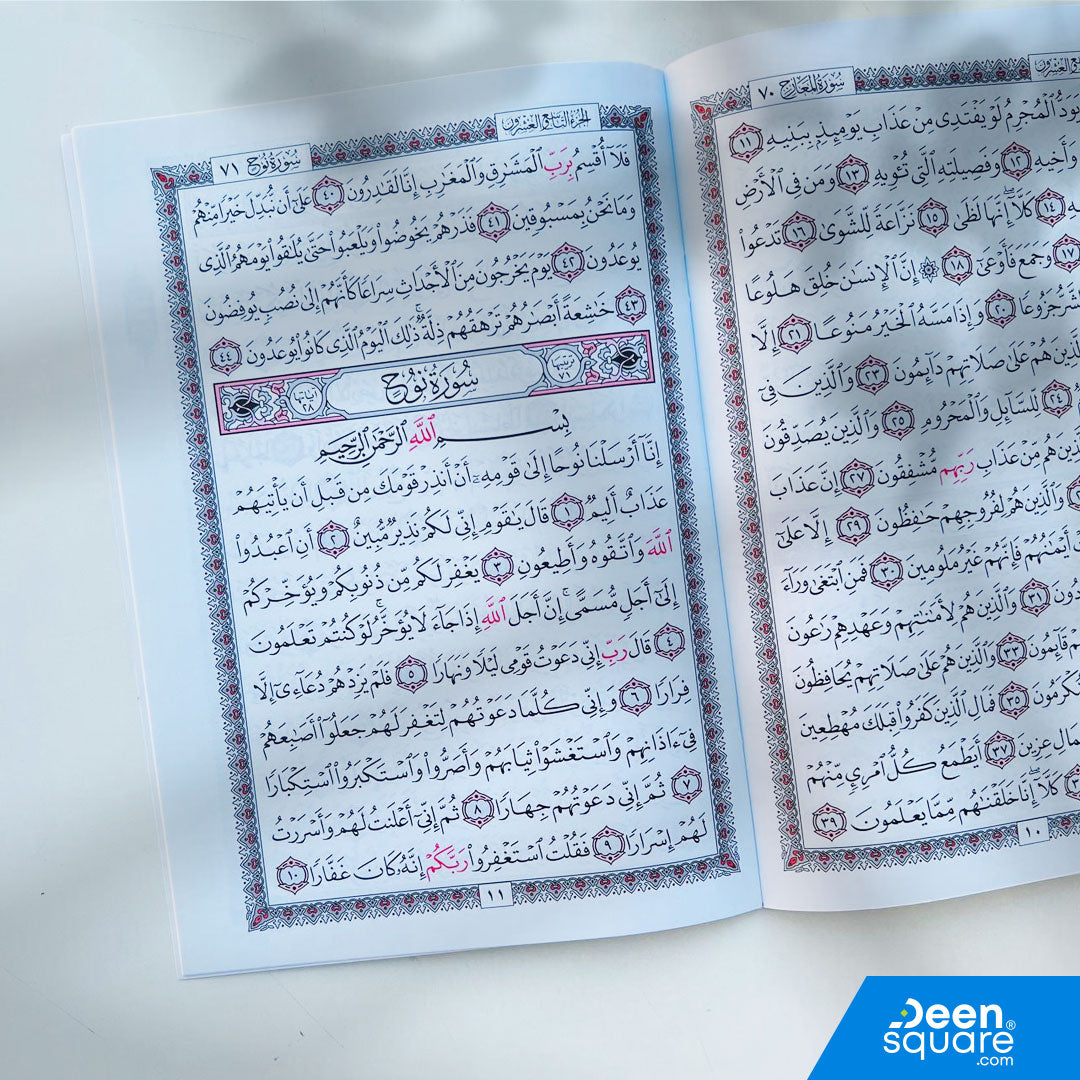 سُورَةُ المَعَارِجِ ٧٠
يَوَدُّ ٱلْمُجْرِمُ لَوْ يَفْتَدِى مِنْ عَذَابِ يَوْمِئِذِۭ بِبَنِيهِ ١١
وَأَخِيهِ ١٢ وَفَصِيلَتِهِ ٱلَّتِى تُـْٔوِيهِ ١٣ وَمَن فِى ٱلْأَرْضِ
١٤ كَلَّآ إِنَّهَا لَظَىٰ ١٥ نَزَّاعَةً لِّلشَّوَىٰ ١٦ تَدْعُوا۟
١٧ وَجَمَعَ فَأَوْعَىٰٓ ١٨ ۞ إِنَّ ٱلْإِنسَـٰنَ خُلِقَ هَلُوعًا
جَزُوعًا ٢٠ وَإِذَا مَسَّهُ ٱلْخَيْرُ مَنُوعًا ٢١ إِلَّا
ٱلَّذِينَ هُمْ عَلَىٰ صَلَاتِهِمْ دَآئِمُونَ ٢٣ وَٱلَّذِينَ فِىٓ
٢٤ لِّلسَّآئِلِ وَٱلْمَحْرُومِ ٢٥ وَٱلَّذِينَ يُصَدِّقُونَ
هُم مِّنْ عَذَابِ رَبِّهِم مُّشْفِقُونَ ٢٧ إِنَّ عَذَابَ
وَٱلَّذِينَ هُمْ لِفُرُوجِهِمْ حَـٰفِظُونَ ٢٩ إِلَّا عَلَىٰٓ
أَيْمَـٰنُهُمْ فَإِنَّهُمْ غَيْرُ مَلُومِينَ ٣٠ فَمَنِ ٱبْتَغَىٰ وَرَآءَ
٣١ وَٱلَّذِينَ هُمْ لِأَمَـٰنَـٰتِهِمْ وَعَهْدِهِمْ رَٰعُونَ
قَآئِمُونَ ٣٣ وَٱلَّذِينَ هُمْ عَلَىٰ صَلَاتِهِمْ يُحَافِظُونَ
مُّكْرَمُونَ ٣٥ فَمَالِ ٱلَّذِينَ كَفَرُوا۟ قِبَلَكَ مُهْطِعِينَ
عِزِينَ ٣٧ أَيَطْمَعُ كُلُّ ٱمْرِئٍ مِّنْهُمْ
كَلَّآ إِنَّا خَلَقْنَـٰهُم مِّمَّا يَعْلَمُونَ ٣٩
١٠
الجزء التاسع العشرون
سُورَةُ نُوحٍ ٧١
فَلَآ أُقْسِمُ بِرَبِّ ٱلْمَشَـٰرِقِ وَٱلْمَغَـٰرِبِ إِنَّا لَقَـٰدِرُونَ ٤٠ عَلَىٰٓ أَن نُّبَدِّلَ خَيْرًا مِّنْهُمْ
وَمَا نَحْنُ بِمَسْبُوقِينَ ٤١ فَذَرْهُمْ يَخُوضُوا۟ وَيَلْعَبُوا۟ حَتَّىٰ يُلَـٰقُوا۟ يَوْمَهُمُ ٱلَّذِى
يُوعَدُونَ ٤٢ يَوْمَ يَخْرُجُونَ مِنَ ٱلْأَجْدَاثِ سِرَاعًا كَأَنَّهُمْ إِلَىٰ نُصُبٍ يُوفِضُونَ
٤٣ خَـٰشِعَةً أَبْصَـٰرُهُمْ تَرْهَقُهُمْ ذِلَّةٌ ۚ ذَٰلِكَ ٱلْيَوْمُ ٱلَّذِى كَانُوا۟ يُوعَدُونَ ٤٤
ترتيبها ٧١ سُورَةُ نُوحٍ آياتها ٢٨
بِسْمِ ٱللَّهِ ٱلرَّحْمَـٰنِ ٱلرَّحِيمِ
إِنَّآ أَرْسَلْنَا نُوحًا إِلَىٰ قَوْمِهِۦٓ أَنْ أَنذِرْ قَوْمَكَ مِن قَبْلِ أَن يَأْتِيَهُمْ
عَذَابٌ أَلِيمٌ ١ قَالَ يَـٰقَوْمِ إِنِّى لَكُمْ نَذِيرٌ مُّبِينٌ ٢ أَنِ ٱعْبُدُوا۟
ٱللَّهَ وَٱتَّقُوهُ وَأَطِيعُونِ ٣ يَغْفِرْ لَكُم مِّن ذُنُوبِكُمْ وَيُؤَخِّرْكُمْ
إِلَىٰٓ أَجَلٍ مُّسَمًّى ۚ إِنَّ أَجَلَ ٱللَّهِ إِذَا جَآءَ لَا يُؤَخَّرُ ۖ لَوْ كُنتُمْ تَعْلَمُونَ
٤ قَالَ رَبِّ إِنِّى دَعَوْتُ قَوْمِى لَيْلًا وَنَهَارًا ٥ فَلَمْ يَزِدْهُمْ دُعَآءِىٓ إِلَّا
فِرَارًا ٦ وَإِنِّى كُلَّمَا دَعَوْتُهُمْ لِتَغْفِرَ لَهُمْ جَعَلُوٓا۟ أَصَـٰبِعَهُمْ
فِىٓ ءَاذَانِهِمْ وَٱسْتَغْشَوْا۟ ثِيَابَهُمْ وَأَصَرُّوا۟ وَٱسْتَكْبَرُوا۟ ٱسْتِكْبَارًا
٧ ثُمَّ إِنِّى دَعَوْتُهُمْ جِهَارًا ٨ ثُمَّ إِنِّىٓ أَعْلَنتُ لَهُمْ وَأَسْرَرْتُ
لَهُمْ إِسْرَارًا ٩ فَقُلْتُ ٱسْتَغْفِرُوا۟ رَبَّكُمْ إِنَّهُۥ كَانَ غَفَّارًا ١٠
١١
Deen
square®
.com